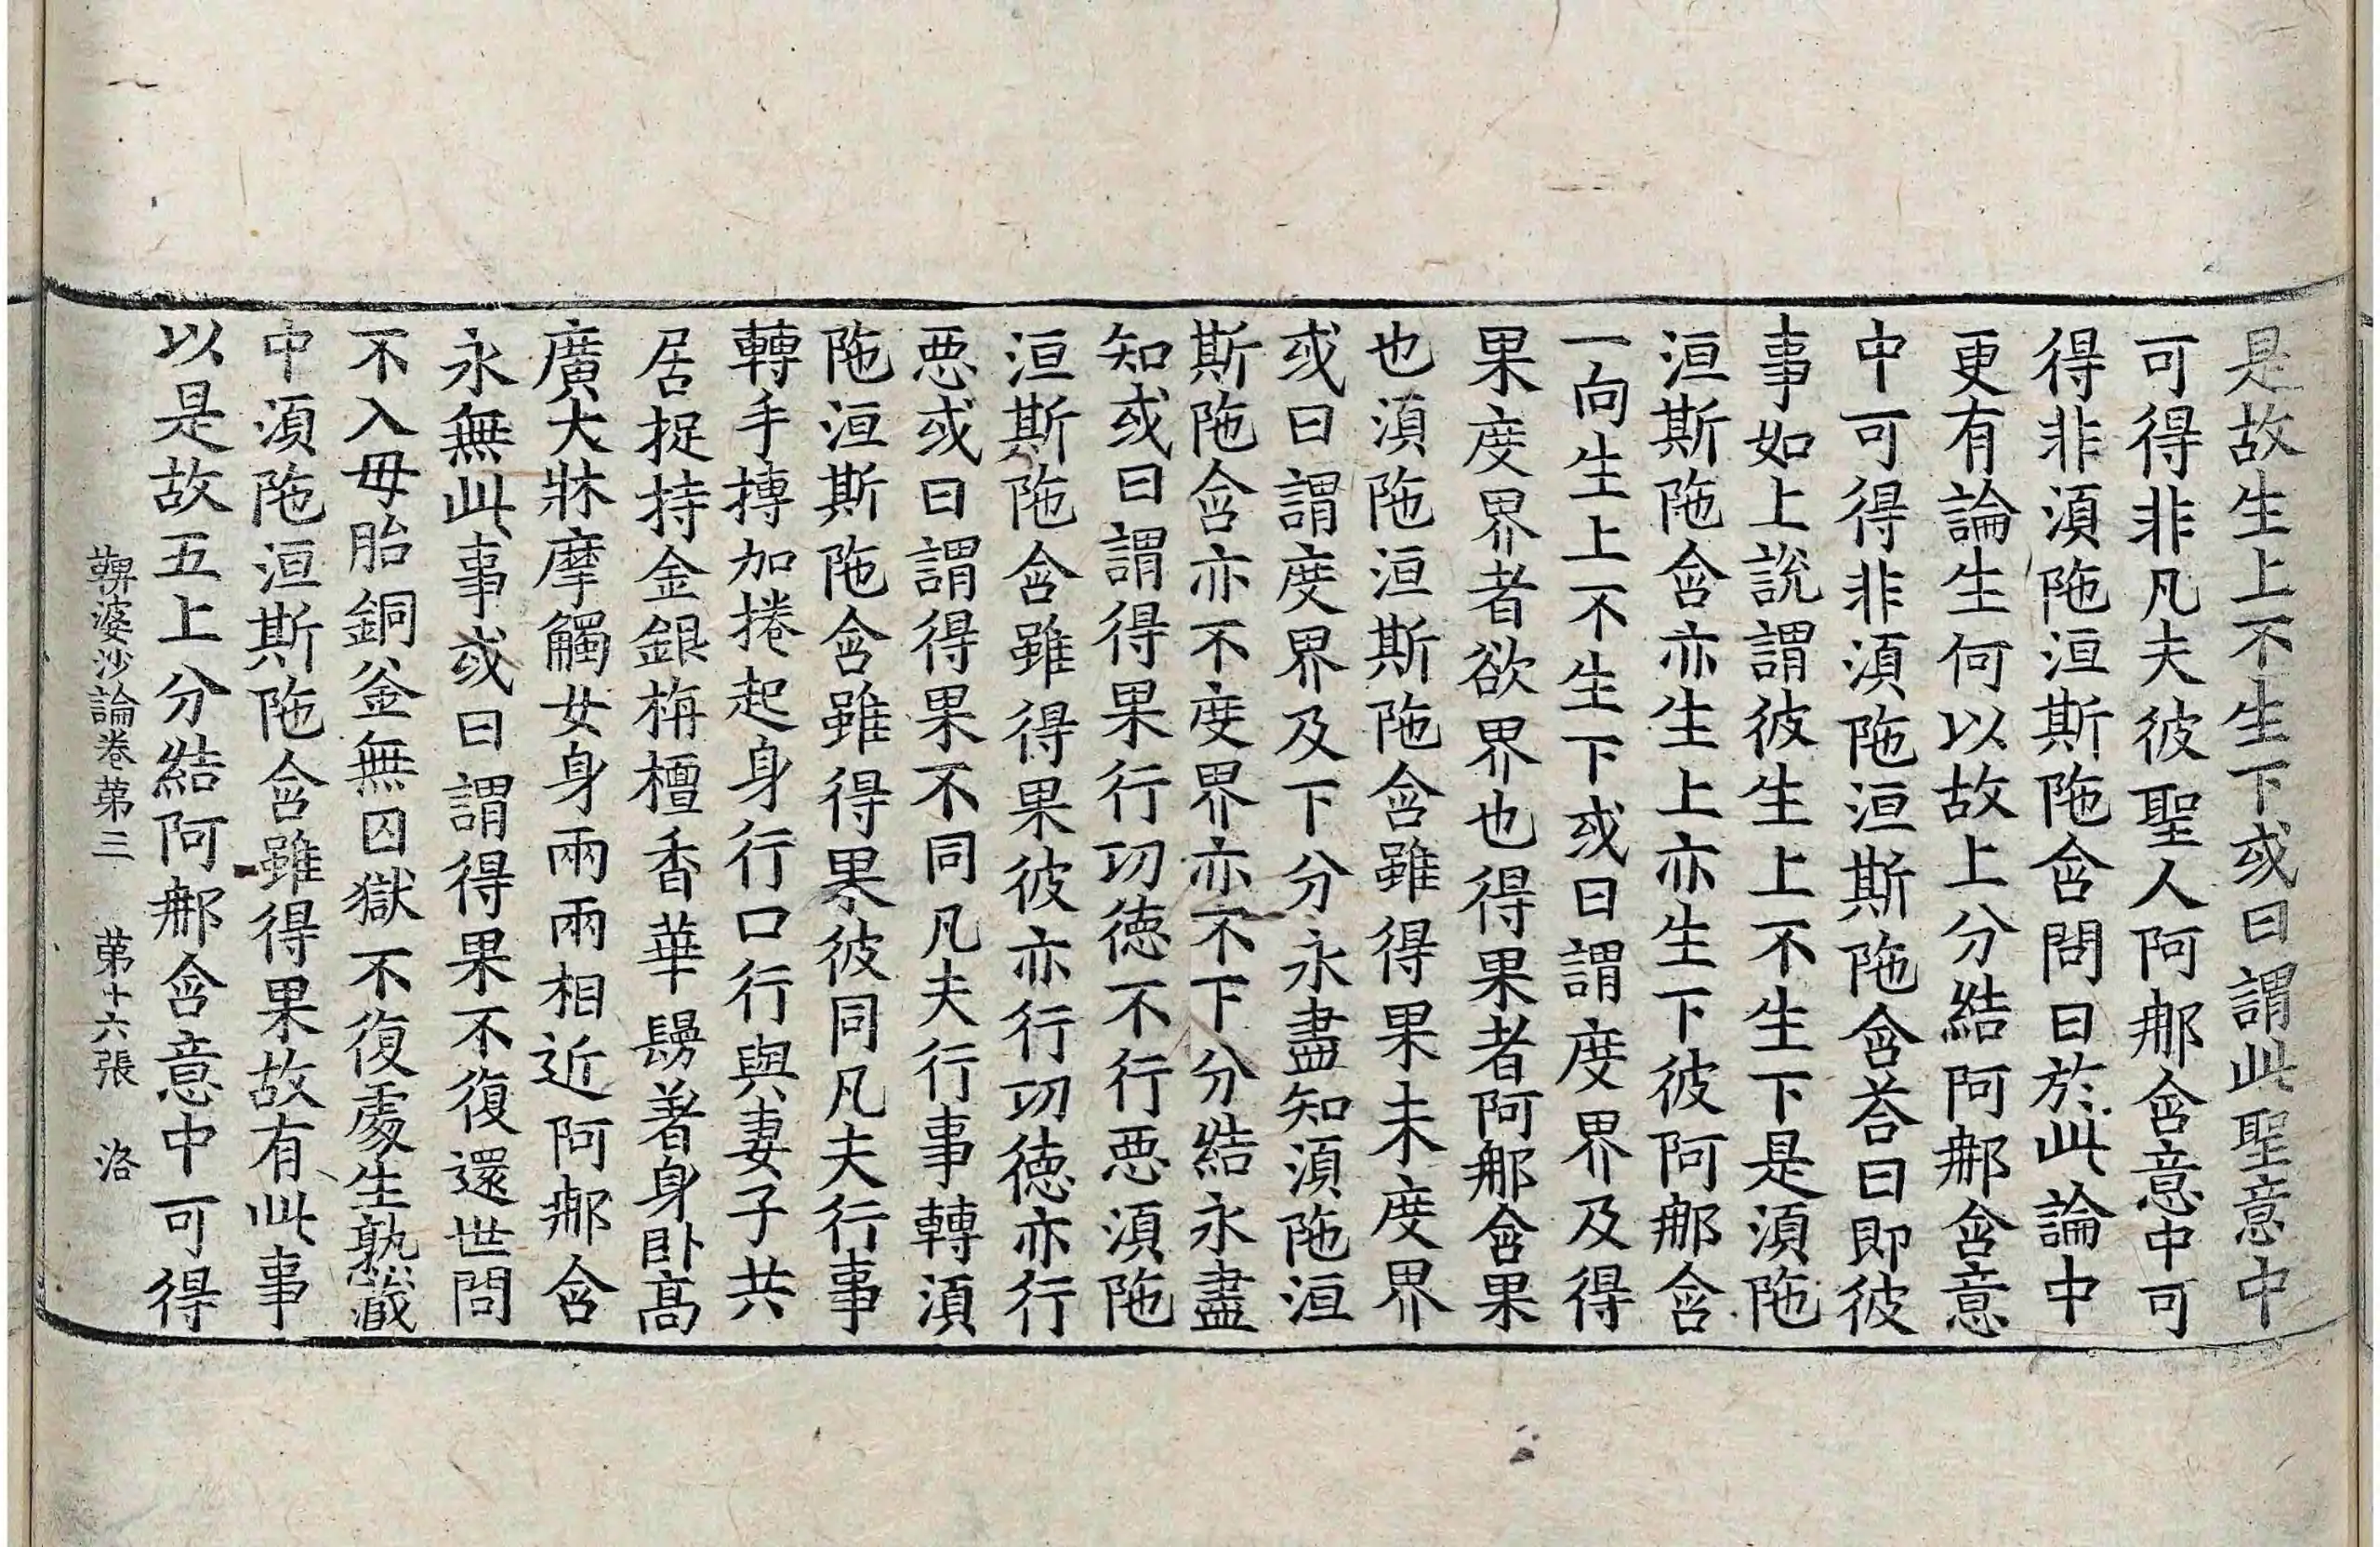 是故生上不生下或曰謂此聖意中
可得非凡夫彼聖人阿那含意中可
得非湏陁洹斯陁含問曰於此論中
更有論生何以故上分結阿那含意
中可得非湏陁洹斯陁含荅曰即彼
事如上說謂彼生上不生下是湏陁
洹斯陁含亦生上亦生下彼阿那含
一向生上不生下或曰謂度界及得
果度界者欲界也得果者阿那含果
也湏陁洹斯陁含雖得果未度界
或曰謂度界及下分永盡知湏陁洹
斯陁含亦不度界亦不下分結永盡
知或曰謂得果行功德不行惡湏陁
洹斯陁含雖得果彼亦行功德亦行
惡或曰謂得果不同凡夫行事轉湏
陁洹斯陁含雖得果彼同凡夫行事
轉手摶加捲起身行口行與妻子共
居捉持金銀栴檀香華鬘著身卧高
廣大牀摩觸女身兩兩相近阿那含
永無此事或曰謂得果不復還世間
不入母胎銅釜無囚獄不復處生熟藏
中湏陁洹斯陁含雖得果故有此事
以是故五上分結阿那含意中可得
鞞婆沙論卷第三　第十六張　洛